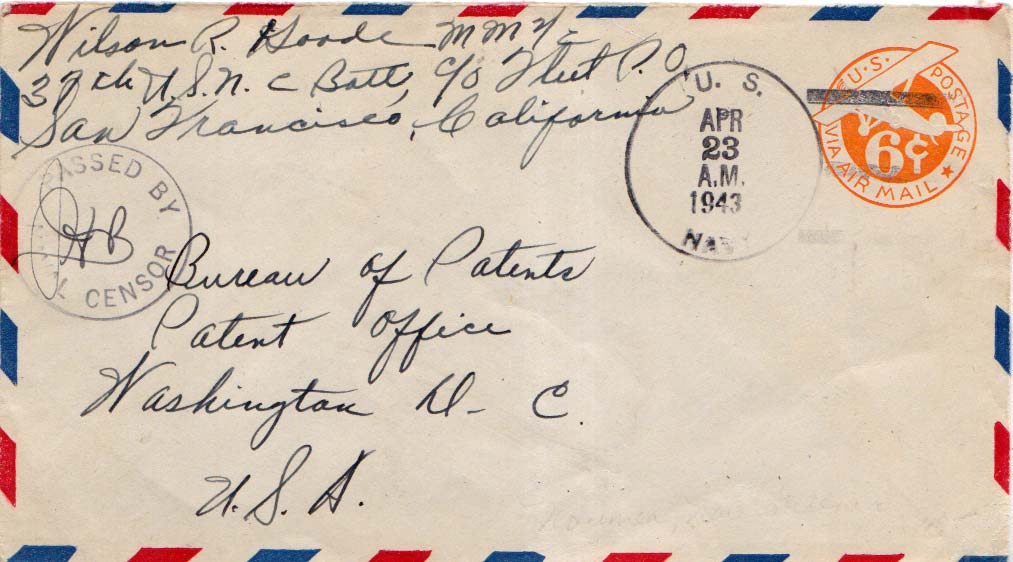 Wilson R. Goode MM1/c
37th U.S.N. C Batt, c/o Fleet P.O.
San Francisco, California
U. S.
APR
23
A.M.
1943
NAVY
U.S. POSTAGE
6¢
VIA AIR MAIL
PASSED BY
HB
CENSOR
Bureau of Patents
Patent Office
Washington D- C.
U.S.A.